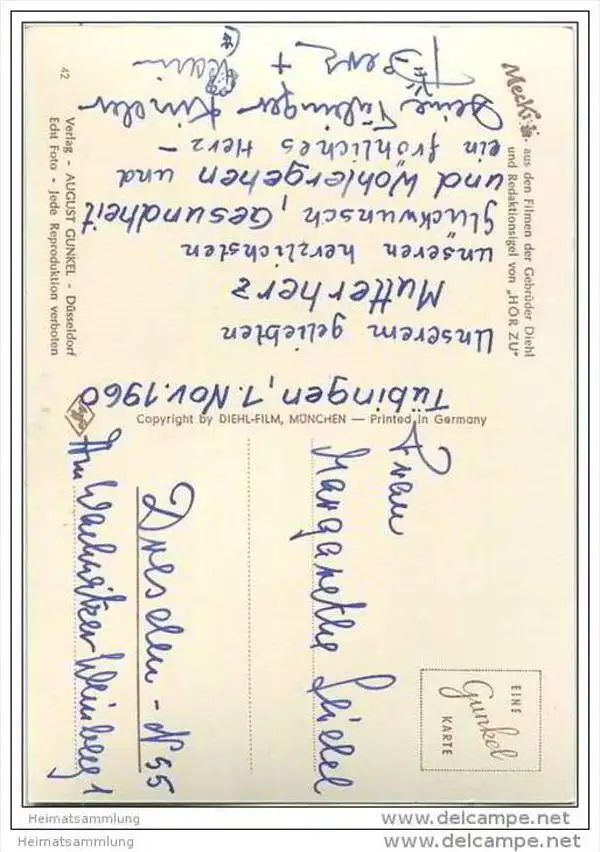 Mecki aus den Filmen der Gebrüder Diehl
und Redaktionsigel von „HÖR ZU"
Tübingen, 1. Nov. 1960
Unserem geliebten
Mutterherz
unseren herzlichsten
Glückwunsch, Gesundheit
und Wohlergehen und
ein fröhliches Herz –
Deine Tübinger Kinder
+
42
Verlag - AUGUST GUNKEL - Düsseldorf
Echt Foto - Jede Reproduktion verboten
Copyright by DIEHL-FILM, MÜNCHEN — Printed in Germany
Agfa
EINE
Gunkel
KARTE
Frau
Margarethe
Dresden - N 55
Am Wachwitzer Weinberg 1
Heimatsammlung
Heimatsammlung
www.delcampe.net
www.delcampe.net